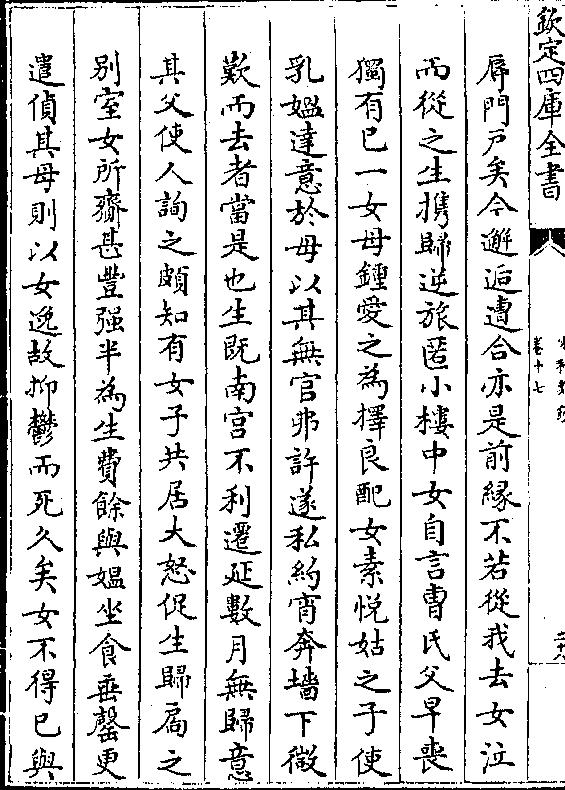 欽定四庫全書
卷十七
辱門戸矣今邂逅遭合亦是前縁不若從我去女泣
而從之生携歸逆旅匿小樓中女自言曹氏父早喪
獨有已一女母鍾愛之為擇良配女素悦姑之子使
乳媪達意於母以其無官弗許遂私約宵奔墻下微
歎而去者當是也生既南宫不利遷延數月無歸意
其父使人詢之頗知有女子共居大怒促生歸扄之
别室女所齎甚豐强半為生費餘與媪坐食垂罄更
遣偵其母則以女逸故抑鬱而死久矣女不得已與